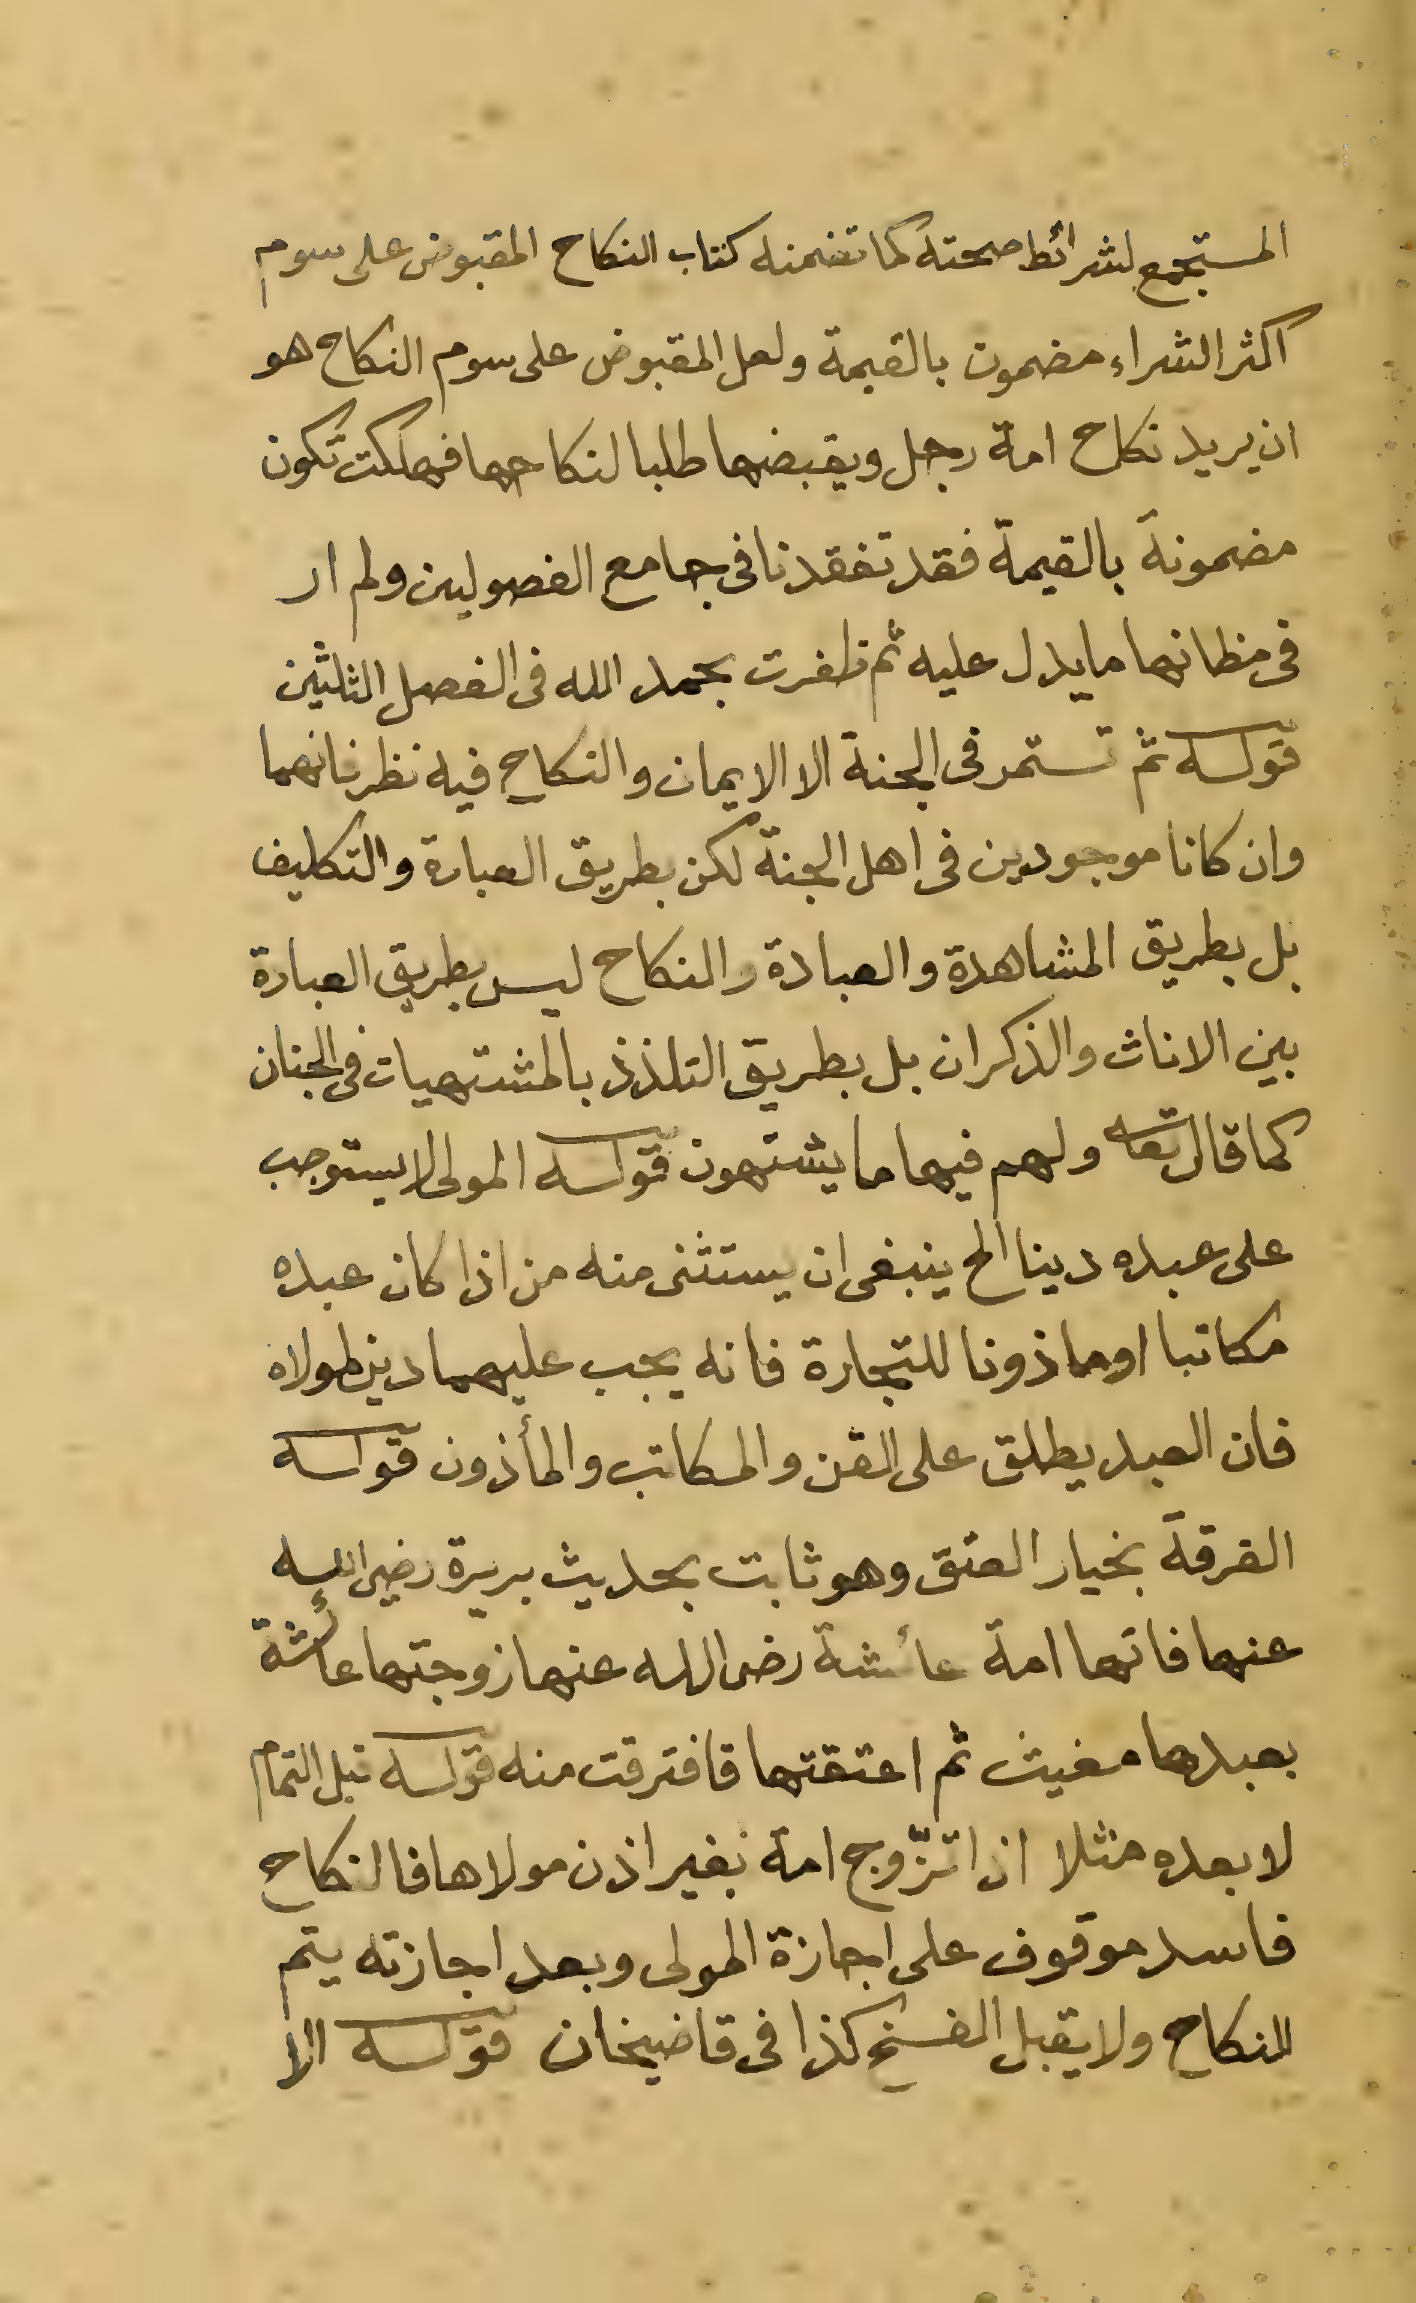 المستجمع لشرائط صحته كما تضمنه كتاب النكاح المقبوض على سوم
اكثر الشراء مضمون بالقيمة ولعل المقبوض على سوم النكاح هو
ان يريد نكاح امة رجل ويقبضها طلبا لنكاحها فهلكت تكون
مضمونة بالقيمة فقد تفقدنا فى جامع الفصولين ولم ار
فى مظانها ما يدل عليه ثم ظفرت بحمد الله فى الفصل الثلثين
قوله ثم تستمر فى الجنة الا الايمان والنكاح فيه نظر فانهما
وان كانا موجودين فى اهل الجنة لكن بطريق العبارة والتكليف
بل بطريق المشاهدة والعبادة والنكاح ليس بطريق العبادة
بين الاناث والذكران بل بطريق التلذذ بالمشتهيات فى الجنان
كما قال تعا ولهم فيها ما يشتهون قوله المولى لا يستوجب
على عبده دينا الخ ينبغى ان يستثنى منه من اذا كان عبده
مكاتبا او ماذونا للتجارة فانه يجب عليهما دين لمولاه
فان العبد يطلق على القن والمكاتب والمأذون قوله
الفرقة بخيار العتق وهو ثابت بحديث بريرة رضى الله
عنها فانها امة عائشة رضى الله عنها زوجتها عائشة
بعبدها مغيث ثم اعتقتها فافترقت منه قوله قبل التمام
لا بعده مثلا اذا تزوج امة بغير اذن مولاها فالنكاح
فاسد موقوف على اجازة المولى وبعد اجازته يتم
للنكاح ولا يقبل الفسخ كذا فى قاضيخان قوله الا